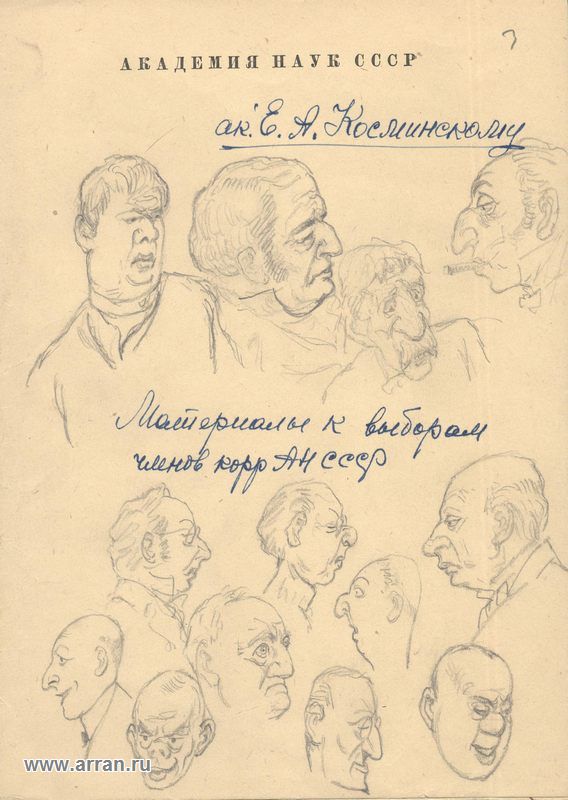 3
АКАДЕМИЯ НАУК СССР
ак. Е. А. Косминскому
Материалы к выборам
членов корр АН СССР
www.arran.ru